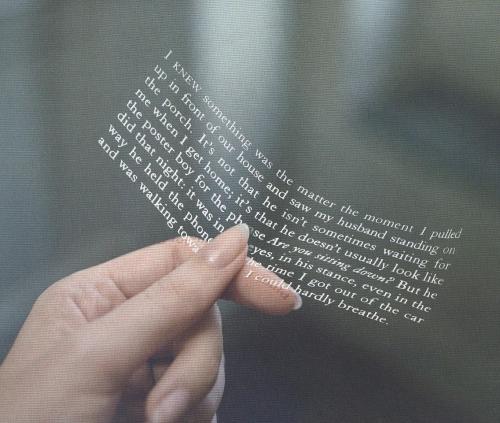 I KNEW something was the matter the moment I pulled
up in front of our house and saw my husband standing on
the porch. It's not that he isn't sometimes waiting for
me when I get home; it's that he doesn't usually look like
the poster boy for the phrase Are you sitting down? But he
did that night: it was in eyes, in his stance, even in the
way he held the phone the time I got out of the car
and was walking towa I could hardly breathe.